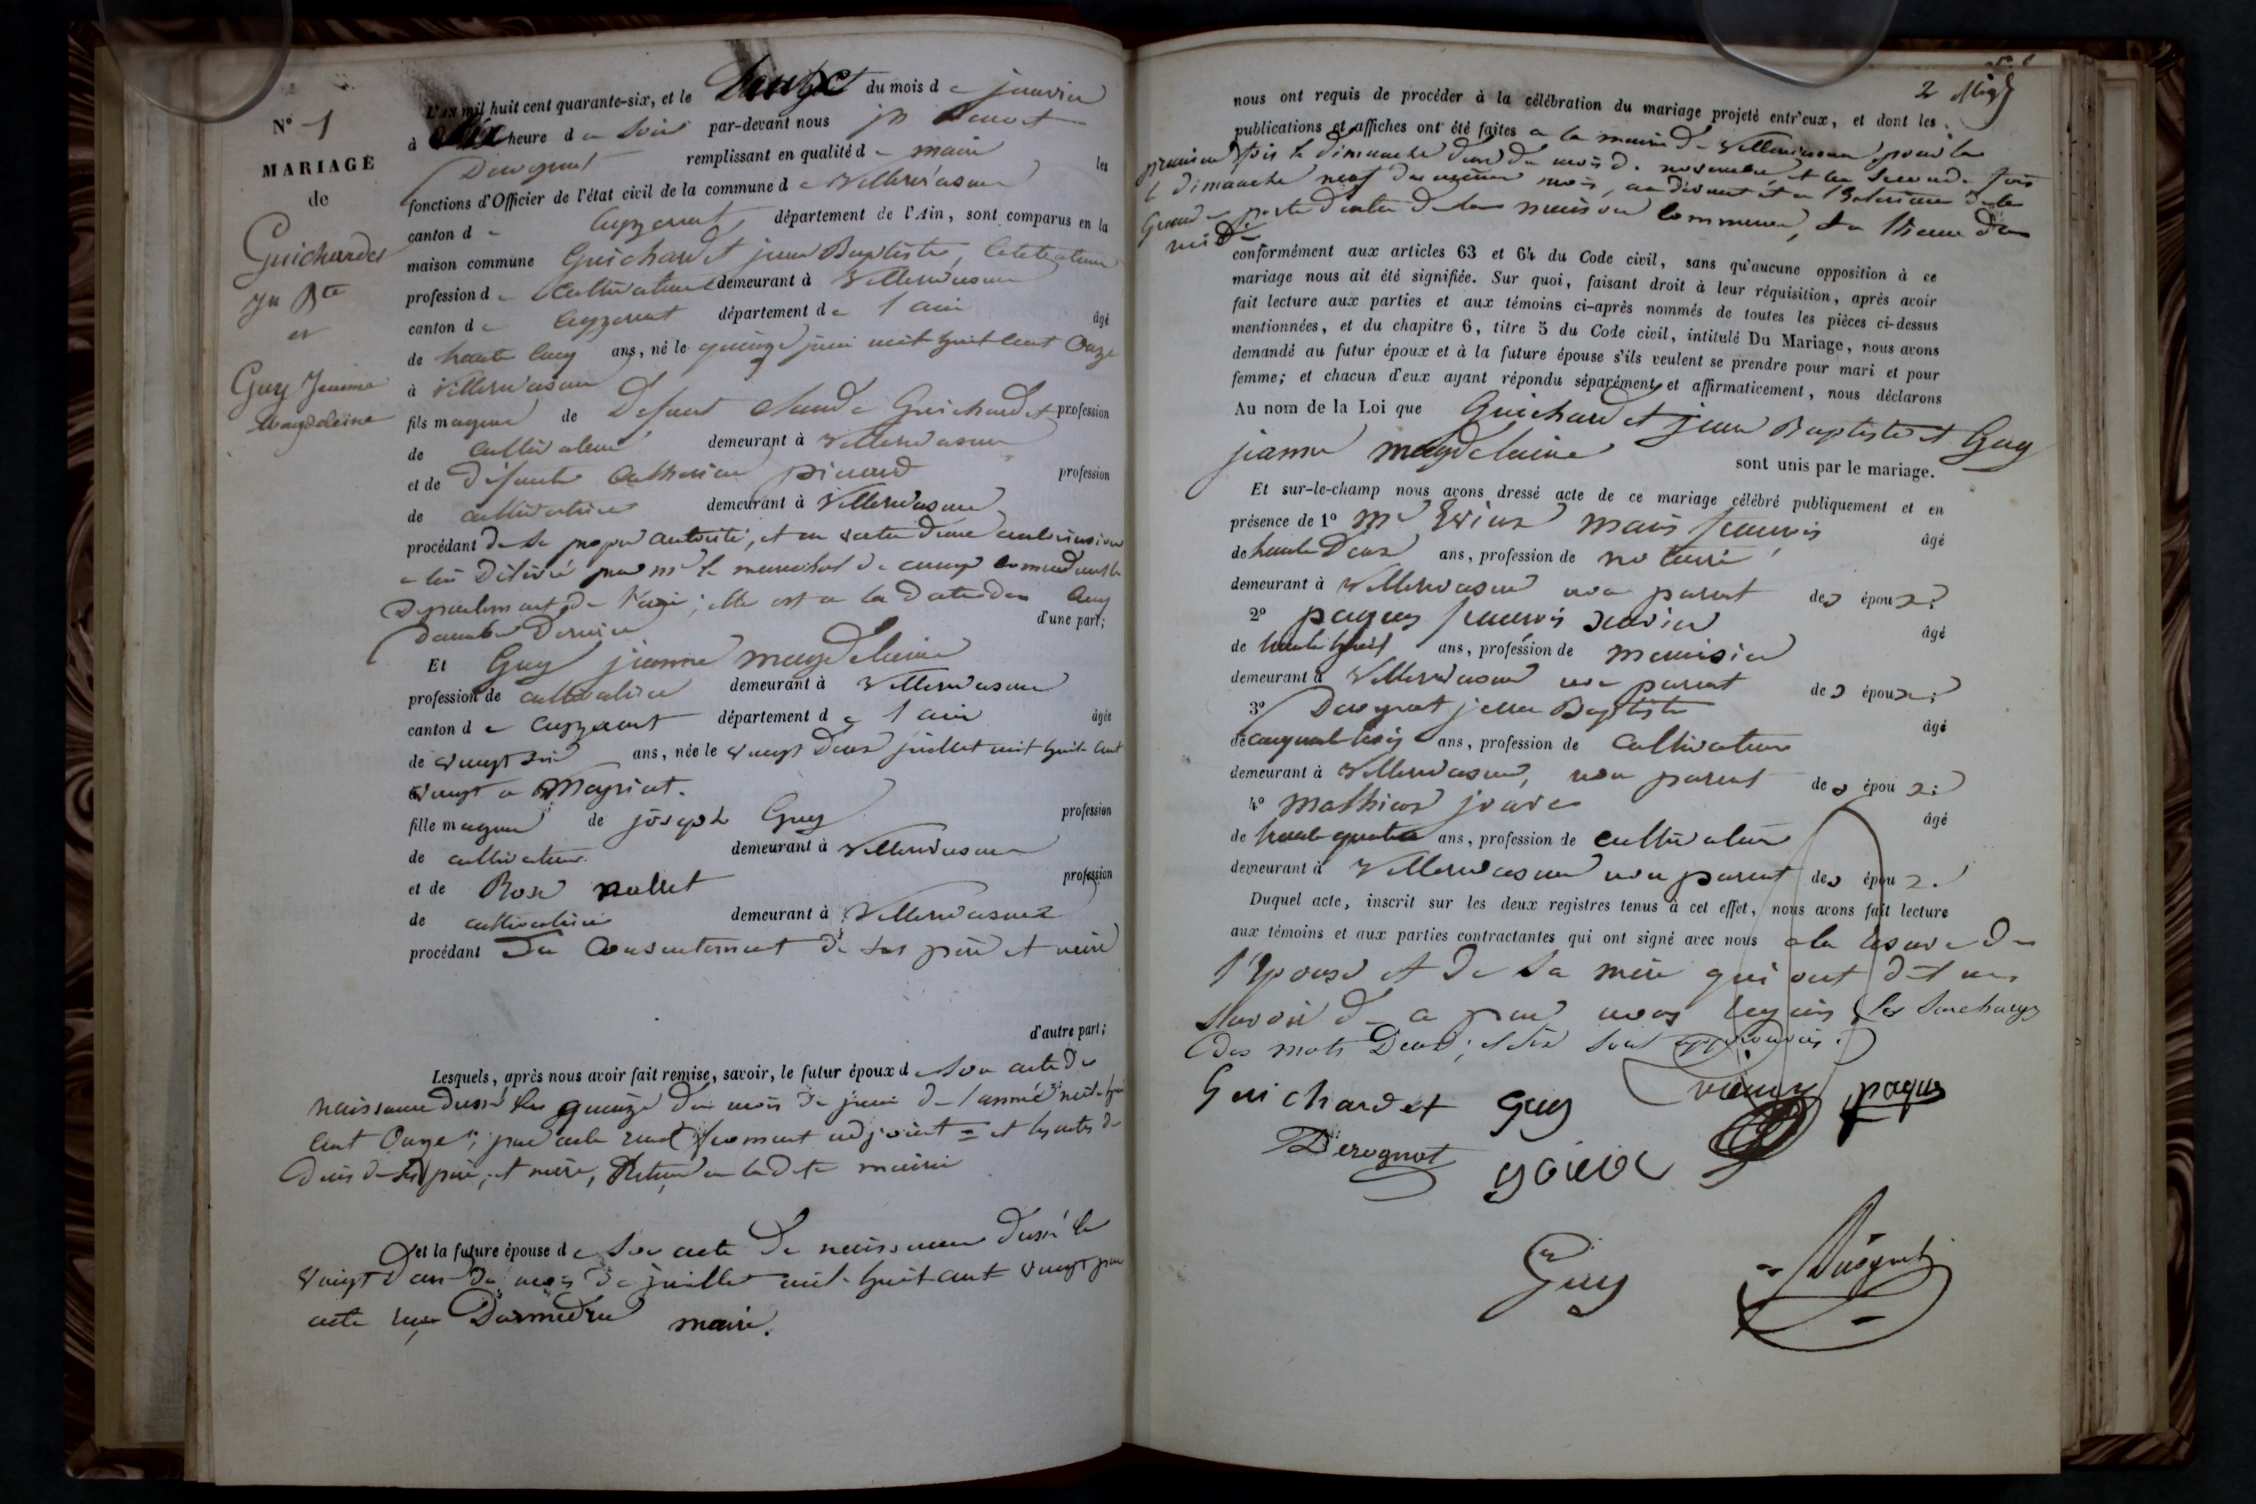 N° 1
MARIAGE
de
Guichardet
Jn Bte
et
Guy Jeanne
Magdeleine
L'AN mil huit cent quarante-six, et le du mois de janvier
à heure du soir par-devant nous jn
Derognat remplissant en qualité de maire les
fonctions d'Officier de l'état civil de la commune de Villereversure
canton de Ceyzeriat, département de l'Ain, sont comparus en la
maison commune Guichardet jean Baptiste,
profession de Cultivateur demeurant à Villereversure
canton de Ceyzeriat département de l ain âgé
de trente cinq ans, né le quinze juin mil huit cent Onze
à Villereversure
fils majeur de Defunt Claude Guichardet profession
de cultivateur demeurant à Villereversure
et de défunte Catherine picard profession
de cultivatrice demeurant à Villereversure
procédant de sa propre autorité, et en vertu d'une autorisation
a lui délivré par mr le marechal de camp commendant le
departement de l'ain; elle est a la date du cinq
d'une part;
decembre dernier
Et Guy jeanne magdelaine
profession de cultivatrice demeurant à Villereversure
canton de Ceyzeriat département de l ain âgée
de vingt six ans, née le vingt deux juillet mil huit cent
vingt a Meyriat.
fille majeure de joseph Guy profession
de cultivateur demeurant à Villereversure
et de Rose profession
de cultivatrice demeurant à Villereversure
procédant du consentement de ses père et mère
d'autre part;
Lesquels, après nous avoir fait remise, savoir, le futur époux de son acte de
naissance dressé le quinze du mois de juin de l'année mil huit
cent Onze, par acte reçu froment adjoint = et les actes de
décès de ses père, et mère, retenu en ladite mairie
et la future épouse de son acte de naissance dressé le
vingt deux du mois de juillet mil huit cent vingt par
acte reçu maire.
2
nous ont requis de procéder à la célébration du mariage projeté entr'eux, et dont les
publications et affiches ont été faites a la mairie de Villereversure, pour la
premiere fois le dimanche deux du mois de novembre et la seconde fois
le dimanche neuf du même mois, au devant et a l'exterieur de la
Grande porte d'entrée de la maison commune, a l'heure de
midi
conformément aux articles 63 et 64 du Code civil, sans qu'aucune opposition à ce
mariage nous ait été signifiée. Sur quoi, faisant droit à leur réquisition, après avoir
fait lecture aux parties et aux témoins ci-après nommés de toutes les pièces ci-dessus
mentionnées, et du chapitre 6, titre 5 du Code civil, intitulé Du Mariage, nous avons
demandé au futur époux et à la future épouse s'ils veulent se prendre pour mari et pour
femme; et chacun d'eux ayant répondu séparément et affirmativement, nous déclarons
Au nom de la Loi que Guichardet jean Baptiste et Guy
jeanne magdelaine sont unis par le mariage.
Et sur-le-champ nous avons dressé acte de ce mariage célébré publiquement et en
présence de 1° mr françois âgé
de trente deux ans, profession de notaire
demeurant à Villereversure non parent des époux;
2° paquis françois xavier âgé
de trente huit ans, profession de menuisier
demeurant à Villereversure non parent des époux;
3° Derognat jean Baptiste âgé
de cinquante trois ans, profession de Cultivateur
demeurant à Villereversure, non parent des époux;
4° Mathieu âgé
de trente quatre ans, profession de cultivateur
demeurant à Villereversure non parent des époux.
Duquel acte, inscrit sur les deux registres tenus à cet effet, nous avons fait lecture
aux témoins et aux parties contractantes qui ont signé avec nous a la reserve de
l'épouse et de sa mère qui ont dit ne
savoir de ce par nous requis les surcharges
des mots Deux; et dix sont approuvés.
Guichardet Guy paquis
Derognat
Guy Derognat